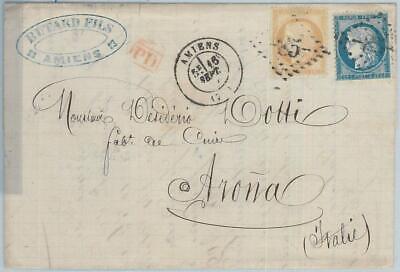 RUTARD FILS
AMIENS
PD
AMIENS
16
SEPT.
17
Monsieur Désidério Dotti
fabt de Cuirs
Arona
(Italie)